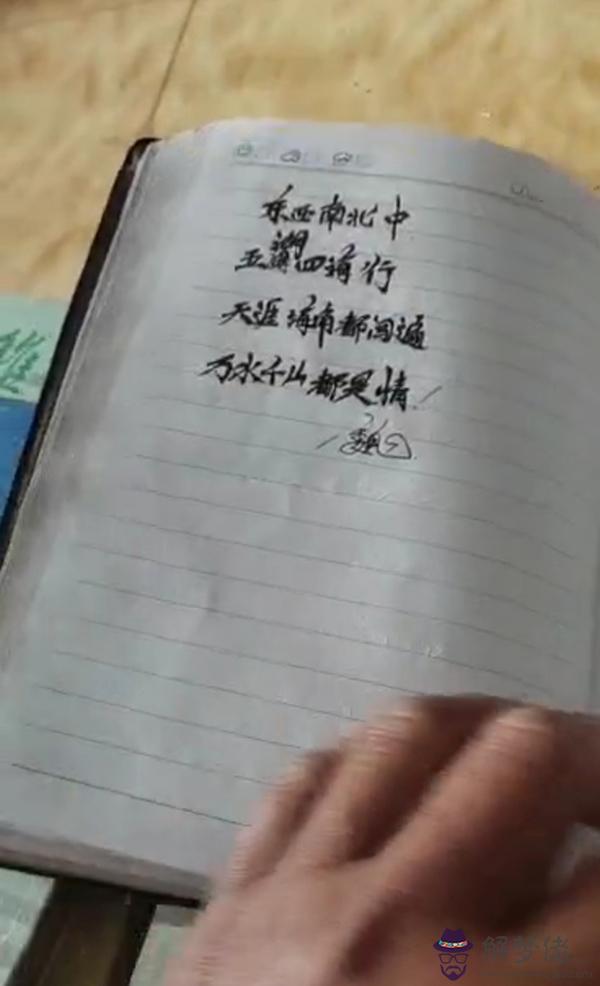 东西南北中
五湖四海行
天涯海角都闯遍
万水千山都是情!
解梦佬